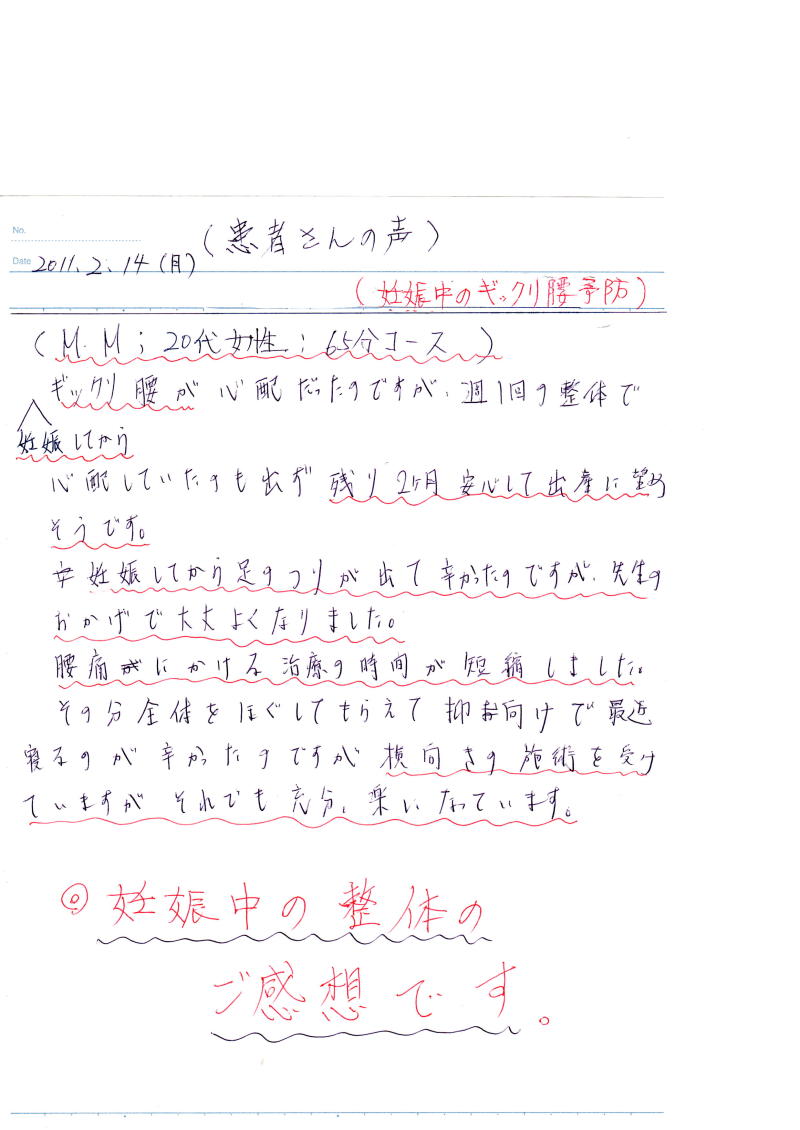 No.
（患者さんの声）
Date 2011.2.14（月）
（妊娠中のギックリ腰予防）
（M.M；20代女性；65分コース）
ギックリ腰が心配だったのですが、週1回の整体で
妊娠してから
心配していたのも出ず残り2ヶ月安心して出産に望め
そうです。
妊娠してから足のつりが出て辛かったのですが、先生の
おかげで大丈よくなりました。
腰痛にかける治療の時間が短縮しました。
その分全体をほぐしてもらえて抑向けで最近
寝るのが辛かったのですが横向きの施術を受け
ていますがそれでも充分、楽になっています。
◎妊娠中の整体の
ご感想です。